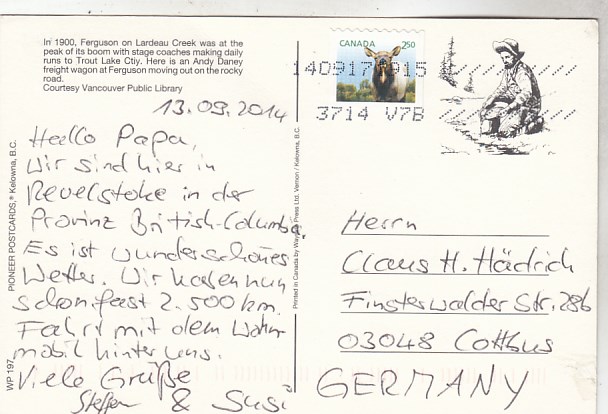 In 1900, Ferguson on Lardeau Creek was at the
peak of its boom with stage coaches making daily
runs to Trout Lake Ctiy. Here is an Andy Daney
freight wagon at Ferguson moving out on the rocky
road.
Courtesy Vancouver Public Library
13.09.2014
Hallo Papa,
wir sind hier in
Revelstoke in der
Provinz British-Columbia.
Es ist wunderschönes
Wetter. Wir haben nun
schon fast 2.500 km
Fahrt mit dem Wohn-
mobil hinter uns.
Viele Grüße
Steffen & Susi
PIONEER POSTCARDS,® Kelowna, B.C.
WP 197
Printed in Canada by Press Ltd. Vernon / Kelowna, B.C.
CANADA 250
140917 0915
3714 V7B
Herrn
Claus H. Hädrich
Finsterwalder Str. 28b
03048 Cottbus
GERMANY